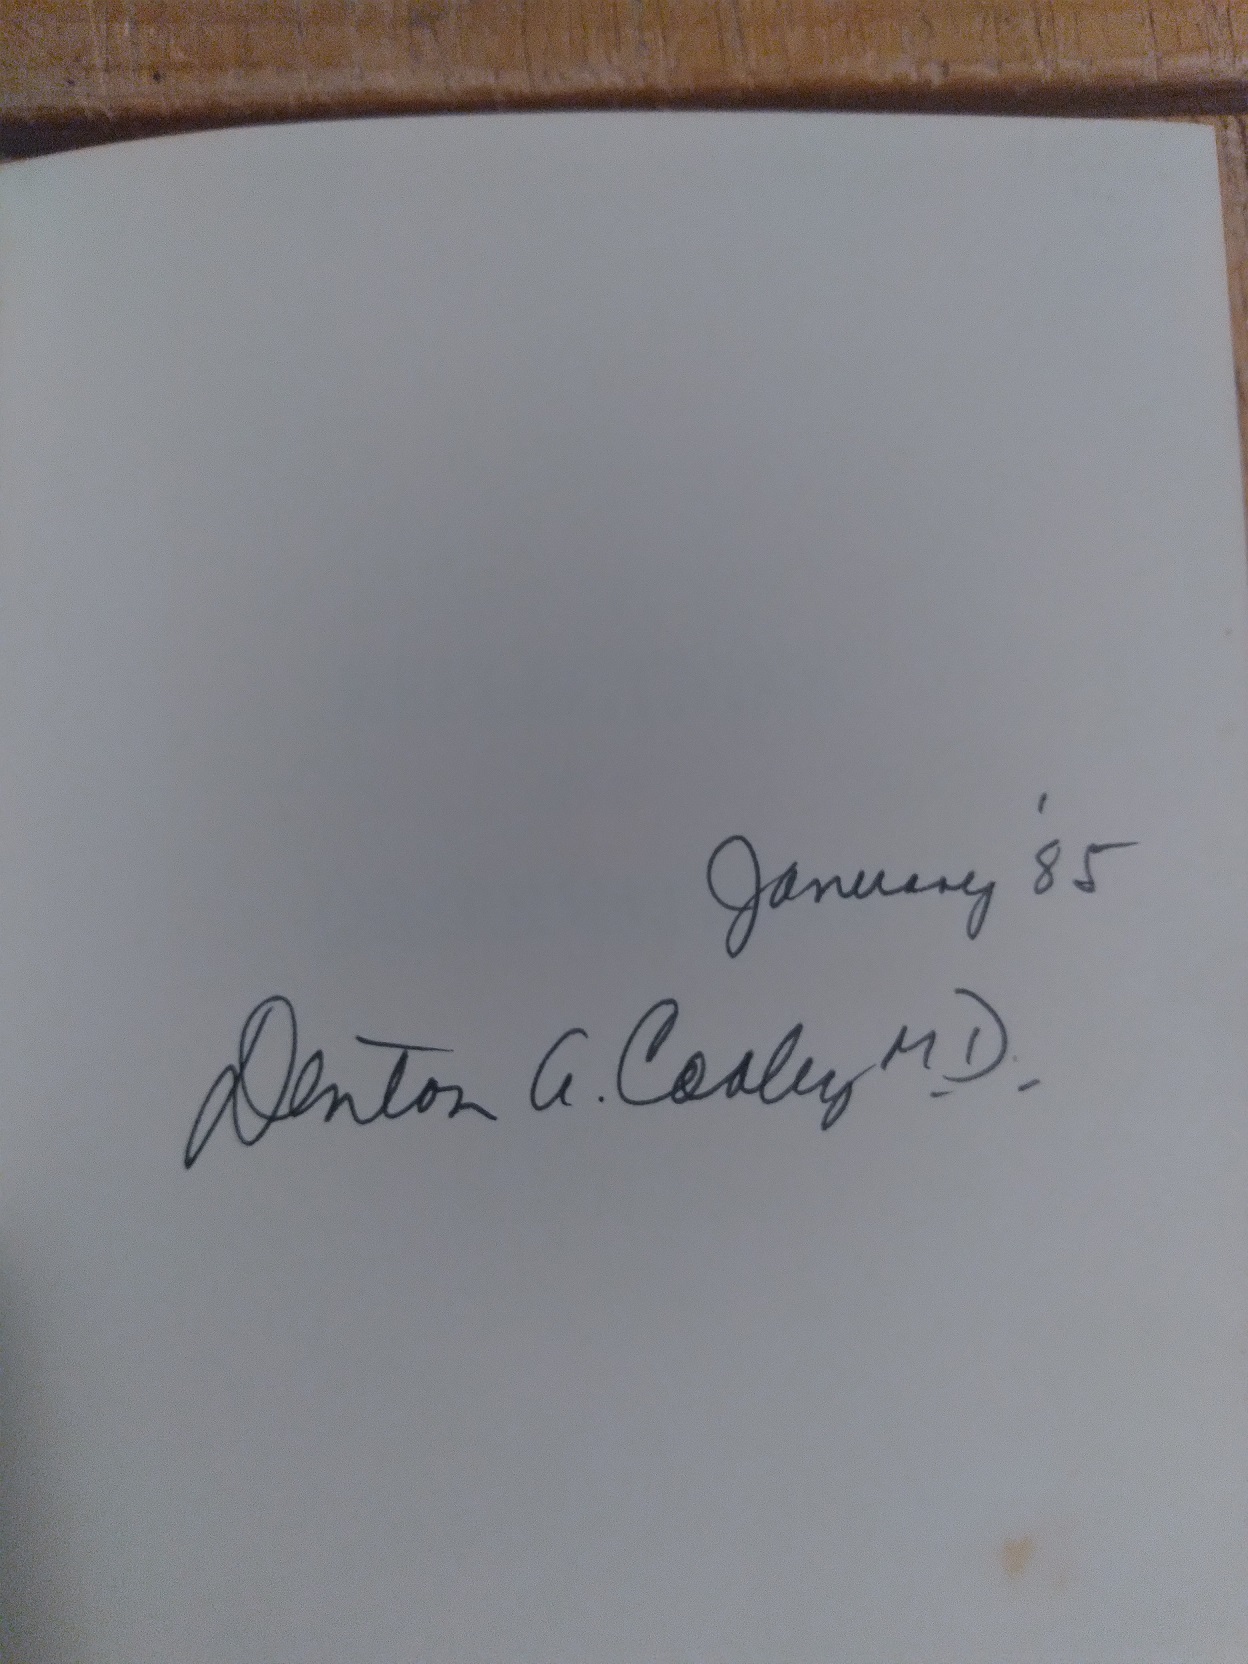 January '85
Denton A. Cooley M.D.